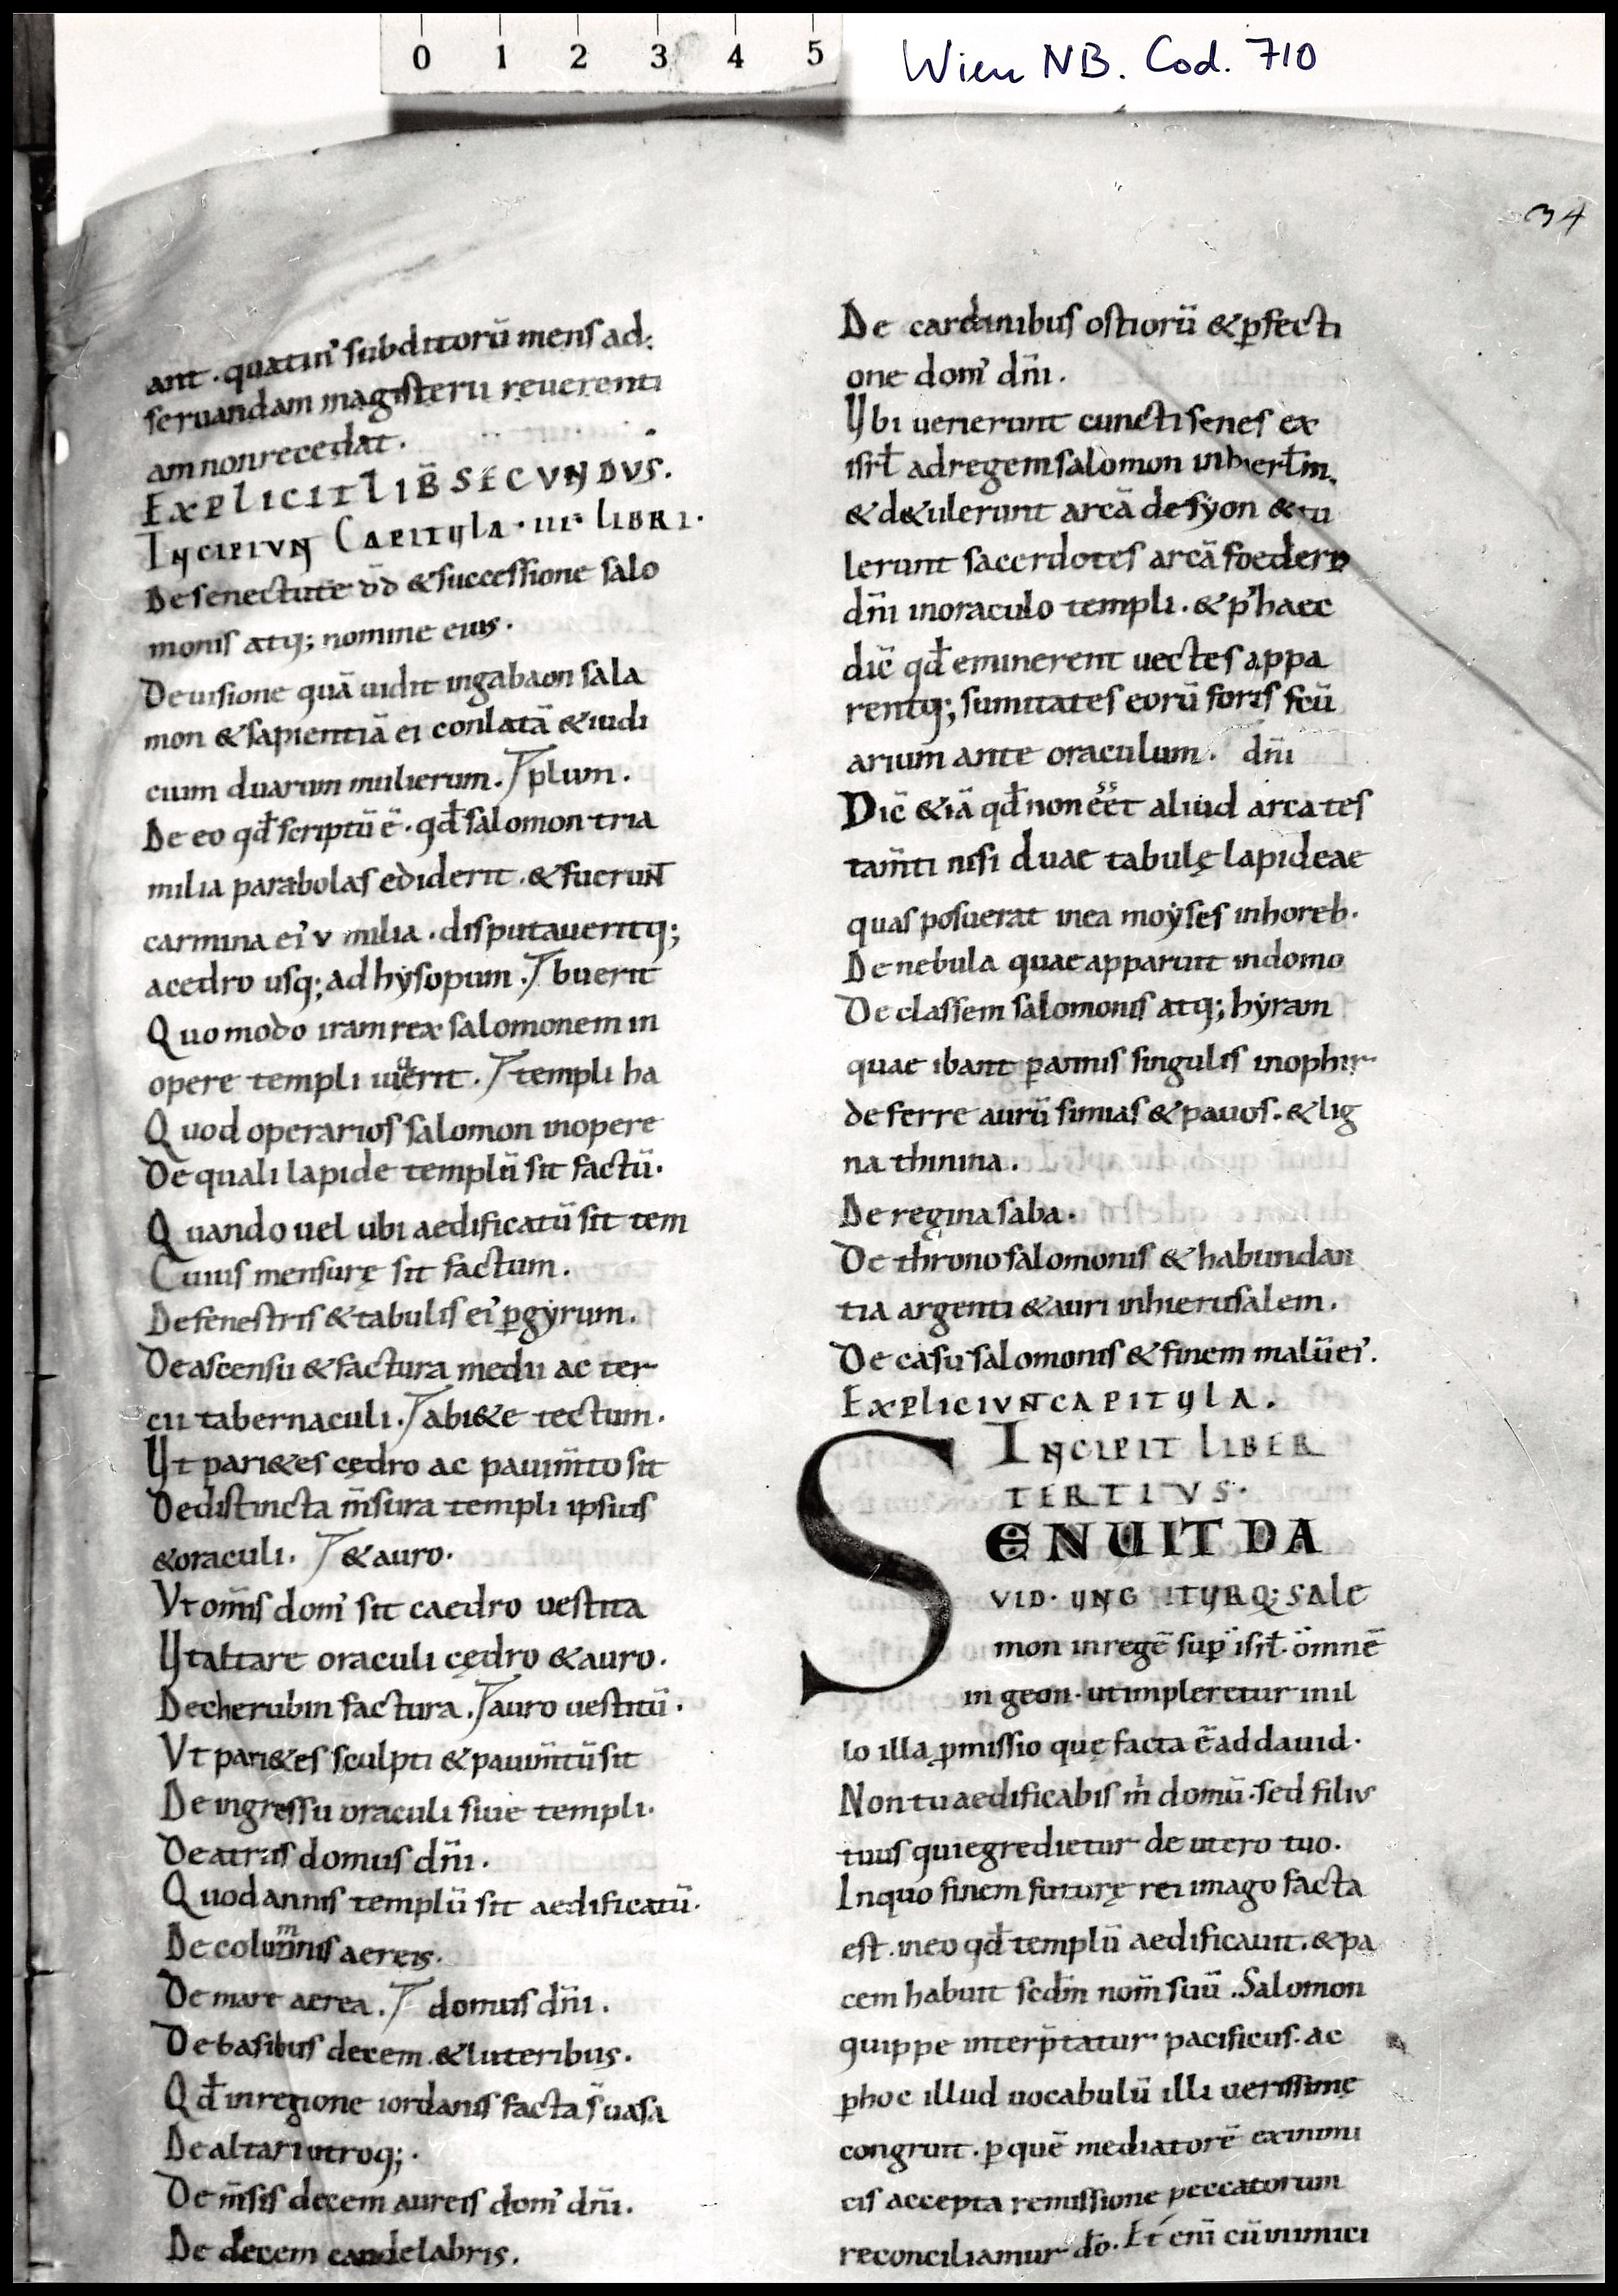 0 1 2 3 4 5
Wien NB. Cod. 710
34
ant · quatin᾽ subditorū mens ad:
seruandam magisterii reuerenti
am non recedat.
EXPLICIT LIB̄ SECVNDVS.
INCIPIVN CAPITULA · III · LIBRI ·
De senectute d̄d & successione salo
monis atq; nomine eius.
De uisione quā uidit ingabaon sala
mon & sapientiā ei conlatā & iudi
cium duarum mulierum. / plum.
De eo qđ scriptū ē · qđ salomon tria
milia parabolas ediderit · & fuerunt
carmina ei᾽ v milia · disputaueritq;
acedro usq; ad hẏsopum. / buerit
Quomodo iram rex salomonem in
opere templi iuuerit. / templi ha
Quod operarios salomon inopere
De quali lapide templū sit factū.
Quando uel ubi aedificatū sit tem
Cuius mensurę sit factum.
De fenestris & tabulis ei᾽ ꝑgẏrum.
De ascensu & factura medii ac ter
cii tabernaculi. / abi&e tectum.
Ut pari&es cędro ac pauim̄to sit
De distincta m̄sura templi ipsius
& oraculi. / & auro.
Vt om̄is dom᾽ sit caedro uestita
Ut altare oraculi cędro & auro.
De cherubin factura. / auro uestitū.
Vt pari&es sculpti & pauim̄tū sit
De ingressu oraculi siue templi.
De atriis domus dn̄i.
Quod annis templū sit aedificatū.
De columnis aereis.
De mare aerea. / domus dn̄i.
De basibus decem & luteribus.
Qđ inregione iordanis facta s̄ uasa
De altari utroq;.
De m̄sis decem aureis dom᾽ dn̄i.
De decem candelabris.
De cardinibus ostiorū & ꝑfecti
one dom᾽ dn̄i.
Ubi uenerunt cuncti senes ex
isrł ad regem salomon inhierłm.
& d&ulerunt arcā de sẏon & tu
lerunt sacerdotes arcā foederis
dn̄i inoraculo templi. & p᾽ haec
dic̄ qđ eminerent uectes appa
rentq; sumitates eorū foris scū
arium ante oraculum. dn̄i
Dic̄ & iā qđ non eēt aliud arca tes
tam̄ti nisi duae tabulę lapideae
quas posuerat inea moẏses inhoreb.
De nebula quae apparuit indomo
De classem salomonis atq; hẏram
quae ibant ꝑ annis singulis inophir
deferre aurū simias & pauos. & lig
na thinina.
De regina saba.
De throno salomonis & habundan
tia argenti & auri inhierusalem.
De casu salomonis & finem malū ei᾽.
EXPLICIUNT CAPITULA.
INCIPIT LIBER
TERTIVS.
SENUIT DA
VID · UNGUITURQ; SALE
mon inregē suꝑ isrł · omnē
in geon · ut impleretur inil
lo illa ꝓmissio quę facta ē ad dauid.
Non tu aedificabis m̄ domū · sed filius
tuus qui egredietur de utero tuo.
Inquo finem futurę rei imago facta
est. ineo qđ templū aedificauit. & pa
cem habuit scdm̄ nom̄ suū. Salomon
quippe interp̄tatur pacificus. ac
ꝑhoc illud uocabulū illi uerissime
congruit. ꝑ quē mediatorē exinimi
cis accepta remissione peccatorum
reconciliamur dō. Et eni cū inimici